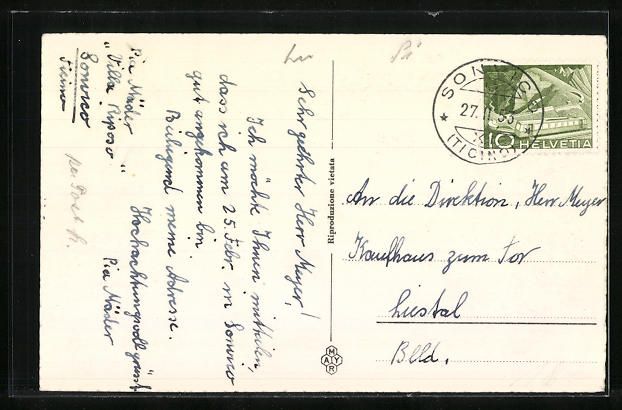 Sehr geehrter Herr Meyer!
Ich möchte Ihnen mitteilen,
dass ich am 25. Febr. in Sonvico
gut angekommen bin.
Beiliegend meine Adresse.
Hochachtungsvoll grüsst
Pia Mäder
Pia Mäder
"Villa Riposo"
Sonvico
Ticino
Riproduzione vietata
MAYR
SONVICO
27.
(TICINO)
10 HELVETIA
An die Direktion, Herr Meyer
Kaufhaus zum Tor
Liestal
Blld.